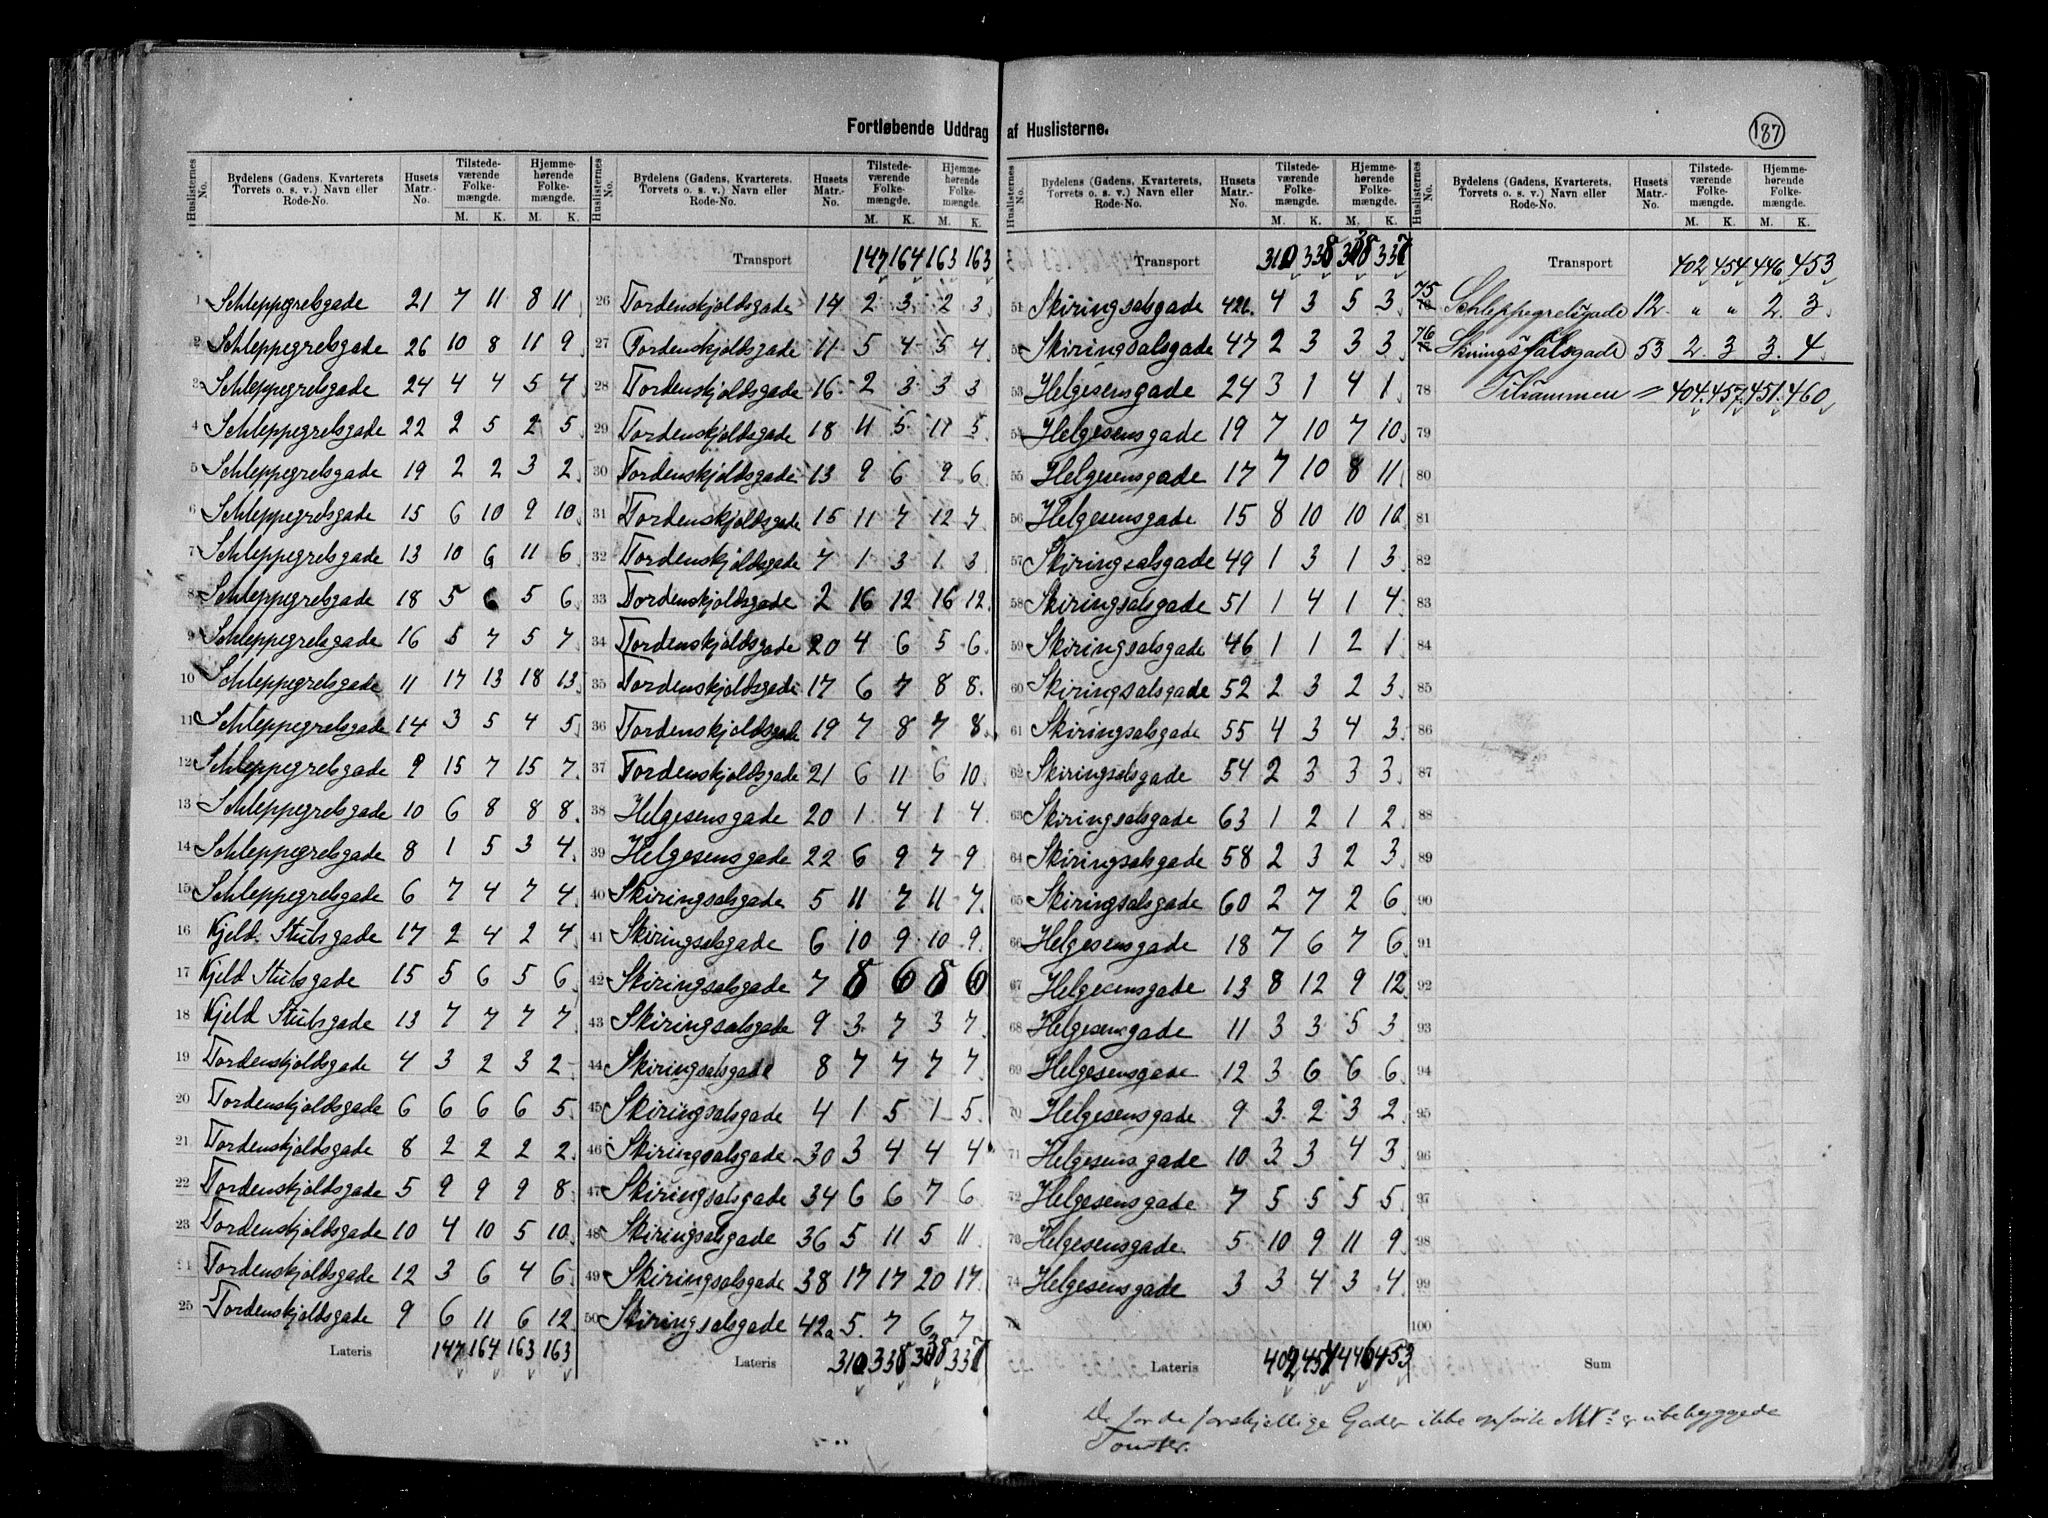 Fortløbende Uddrag af Huslisterne.
187
Huslisternes No. | Bydelens (Gadens, Kvarterets, Torvets o. s. v.) Navn eller Rode-No. | Husets Matr.-No. | Tilstedeværende Folkemængde. M. K. | Hjemmehørende Folkemængde. M. K.
1 Schleppegrelsgade 21 7 11 8 11
2 Schleppegrelsgade 26 10 8 11 9
3 Schleppegrelsgade 24 4 4 5 4
4 Schleppegrelsgade 22 2 5 2 5
5 Schleppegrelsgade 19 2 2 3 2
6 Schleppegrelsgade 15 6 10 9 10
7 Schleppegrelsgade 13 10 6 11 6
8 Schleppegrelsgade 18 5 6 5 6
9 Schleppegrelsgade 16 5 7 5 7
10 Schleppegrelsgade 11 17 13 18 13
11 Schleppegrelsgade 14 3 5 4 5
12 Schleppegrelsgade 9 15 7 15 7
13 Schleppegrelsgade 10 6 8 8 8
14 Schleppegrelsgade 8 1 5 3 4
15 Schleppegrelsgade 6 7 4 7 4
16 Kjeld Stubsgade 17 2 4 2 4
17 Kjeld Stubsgade 15 5 6 5 6
18 Kjeld Stubsgade 13 7 7 7 7
19 Tordenskjoldsgade 4 3 2 3 2
20 Tordenskjoldsgade 6 6 6 6 5
21 Tordenskjoldsgade 8 2 2 2 2
22 Tordenskjoldsgade 5 9 9 9 8
23 Tordenskjoldsgade 10 4 10 5 10
24 Tordenskjoldsgade 12 3 6 4 6
25 Tordenskjoldsgade 9 6 11 6 12
Lateris 147 164 163 163
Huslisternes No. | Bydelens (Gadens, Kvarterets, Torvets o. s. v.) Navn eller Rode-No. | Husets Matr.-No. | Tilstedeværende Folkemængde. M. K. | Hjemmehørende Folkemængde. M. K.
Transport 147 164 163 163
26 Tordenskjoldsgade 14 2 3 2 3
27 Tordenskjoldsgade 11 5 4 5 4
28 Tordenskjoldsgade 16 2 3 3 3
29 Tordenskjoldsgade 18 11 5 11 5
30 Tordenskjoldsgade 13 9 6 9 6
31 Tordenskjoldsgade 15 11 7 12 7
32 Tordenskjoldsgade 7 1 3 1 3
33 Tordenskjoldsgade 2 16 12 16 12
34 Tordenskjoldsgade 20 4 6 5 6
35 Tordenskjoldsgade 17 6 7 8 8
36 Tordenskjoldsgade 19 7 8 7 8
37 Tordenskjoldsgade 21 6 11 6 10
38 Helgesensgade 20 1 4 1 4
39 Helgesensgade 22 6 9 7 9
40 Skiringsalsgade 5 11 7 11 7
41 Skiringsalsgade 6 10 9 10 9
42 Skiringsalsgade 7 8 6 8 6
43 Skiringsalsgade 9 3 7 3 7
44 Skiringsalsgade 8 7 7 7 7
45 Skiringsalsgade 4 1 5 1 5
46 Skiringsalsgade 30 3 4 4 4
47 Skiringsalsgade 34 6 6 7 6
48 Skiringsalsgade 36 5 11 5 11
49 Skiringsalsgade 38 17 17 20 17
50 Skiringsalsgade 42a 5 7 6 7
Lateris 310 338 338 337
Huslisternes No. | Bydelens (Gadens, Kvarterets, Torvets o. s. v.) Navn eller Rode-No. | Husets Matr.-No. | Tilstedeværende Folkemængde. M. K. | Hjemmehørende Folkemængde. M. K.
Transport 310 338 338 337
51 Skiringsalsgade 42b. 4 3 5 3
52 Skiringsalsgade 47 2 3 3 3
53 Helgesensgade 24 3 1 4 1
54 Helgesensgade 19 7 10 7 10
55 Helgesensgade 17 7 10 8 11
56 Helgesensgade 15 8 10 10 10
57 Skiringsalsgade 49 1 3 1 3
58 Skiringsalsgade 51 1 4 1 4
59 Skiringsalsgade 46 1 1 2 1
60 Skiringsalsgade 52 2 3 2 3
61 Skiringsalsgade 55 4 3 4 3
62 Skiringsalsgade 54 2 3 3 3
63 Skiringsalsgade 63 1 2 1 2
64 Skiringsalsgade 58 2 3 2 3
65 Skiringsalsgade 60 2 7 2 6
66 Helgesensgade 18 7 6 7 6
67 Helgesensgade 13 8 12 9 12
68 Helgesensgade 11 3 3 5 3
69 Helgesensgade 12 3 6 6 6
70 Helgesensgade 9 3 2 3 2
71 Helgesensgade 10 3 3 4 3
72 Helgesensgade 7 5 5 5 5
73 Helgesensgade 5 10 9 11 9
74 Helgesensgade 3 3 4 3 4
75
Lateris 402 454 446 453
Huslisternes No. | Bydelens (Gadens, Kvarterets, Torvets o. s. v.) Navn eller Rode-No. | Husets Matr.-No. | Tilstedeværende Folkemængde. M. K. | Hjemmehørende Folkemængde. M. K.
Transport 402 454 446 453
75 Schleppegrelsgade 12 " " 2 3
76 Skiringsalsgade 53 2 3 3 4
78 Tilsammen = 404 457 451 460
79
80
81
82
83
84
85
86
87
88
89
90
91
92
93
94
95
96
97
98
99
100
Sum
De for de forskjellige Gader ikke opførte M.No er ubebyggede
Tomter.